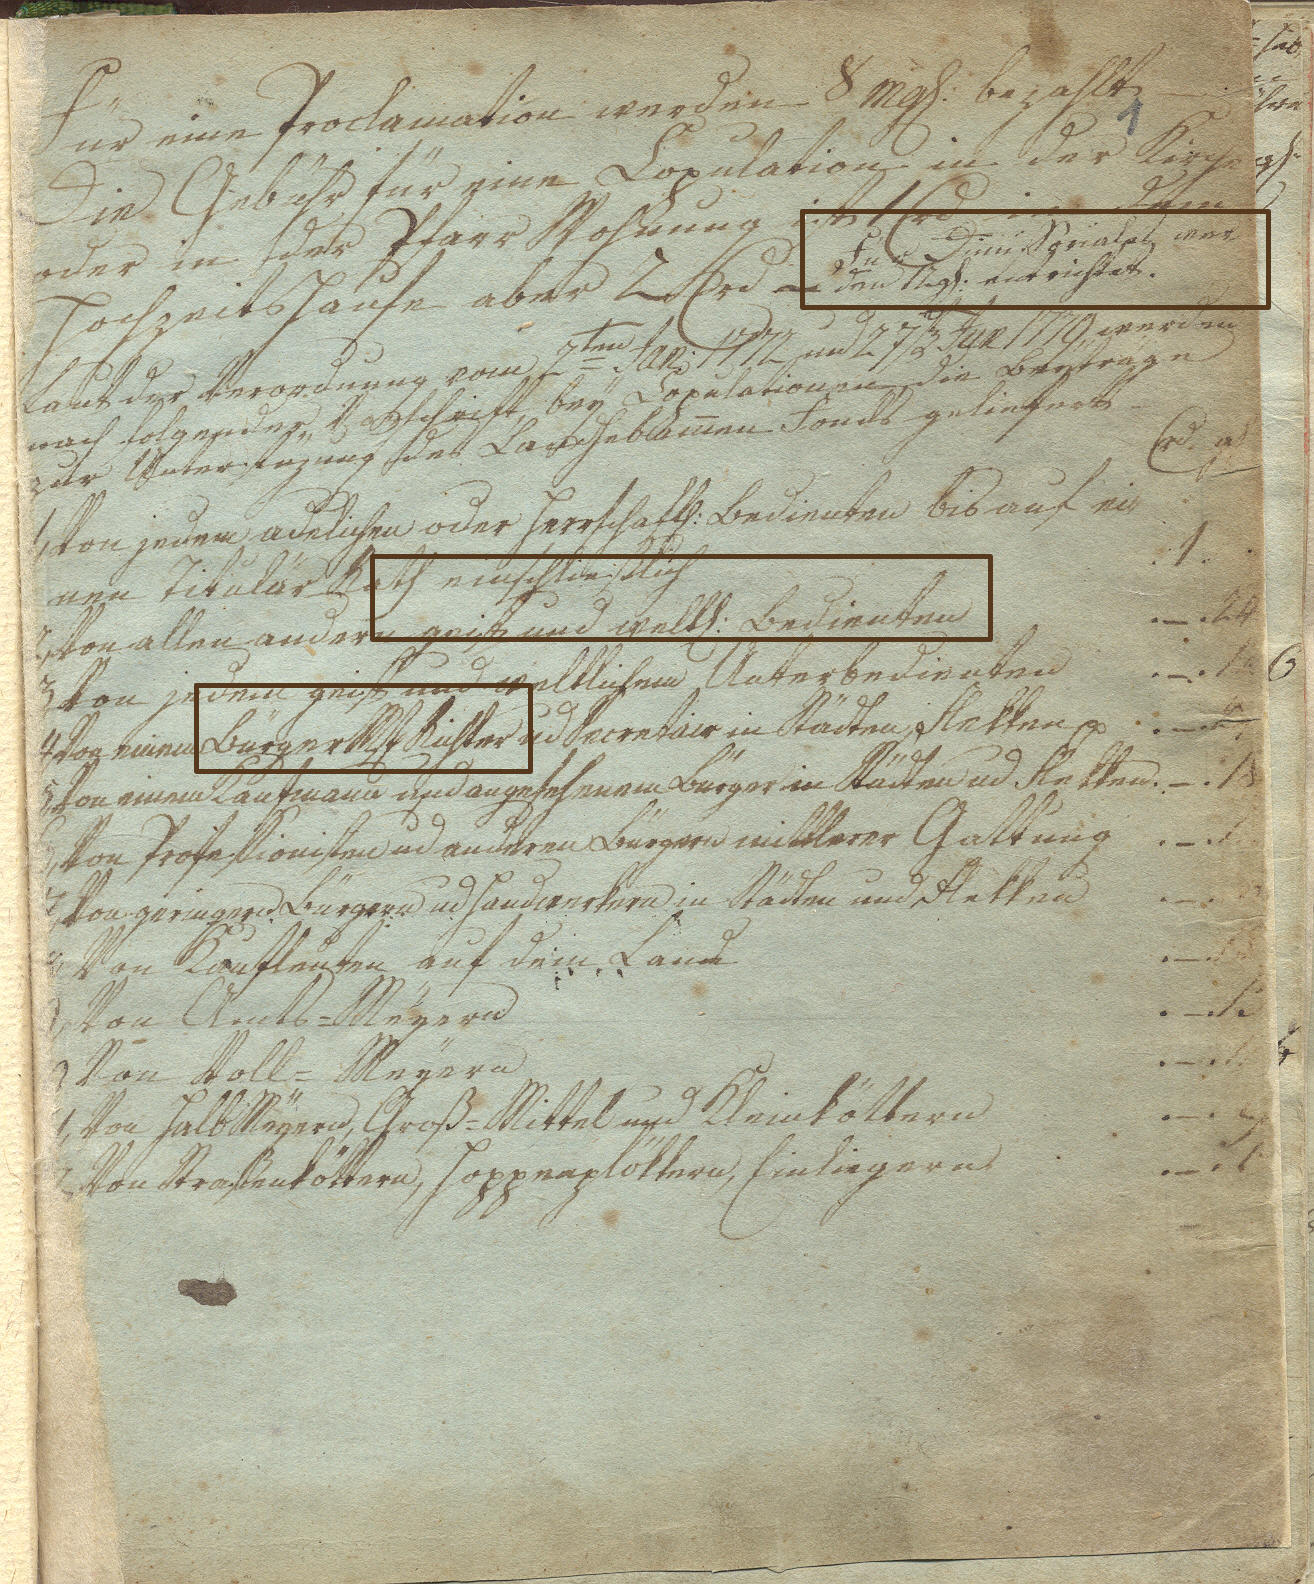 Für eine Proclamation werden 8 mgl: bezahlt
1
Die Gebühr für eine Copulation in der Kirche
oder in der Pfarr Wohnung ist 1 Rd in dem
Hochzeitshause aber 2 Rd
Für Dimissoriales wer
den 12gl. entrichtet.
Laut der Verordnung vom 2ten Jan: 1772 und 27 1779, werden
nach folgender Vorschrift, bey Copulationen die Beyträge
zur Unterstützung des Landhebam̅en Fonds geliefert
Rd. gl
1, Von jedem adelichen oder Herrschaftl: Bedienten bis auf ei
nen Titulär Rath einschließlich .1.
2, Von allen andern geistl und weltl: Bedienten .–.24
3, Von jedem geistl und weltlichem Unterbedienten
4, Von einem Bürger Mstr Richter ud Secretair in Städten, Flekken
5, Von einem Kaufmann und angesehenem Bürger in Städten ud Flekken.
6, Von Professionisten ud anderen Bürgern mittlerer Gattung
7, Von geringern Bürgern ud Handwerkern in Städten und Flekken
Von Kaufleuten auf dem Lande
Von Amts=Meyern
Von Voll= Meyern
Von Halb Meyern, Groß=Mittel und Kleinköttern
Von Straßenköttern, Hoppenplöktern, Einliegern